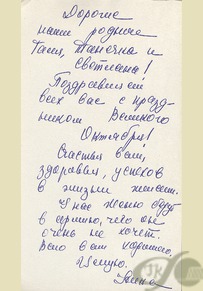 Дорогие
наши родные
Галя, Танечка и
Светлана!
Поздравляем
всех вас с празд-
ником Великого
Октября!
Счастья вам,
здоровья, успехов
в жизни желаем.
У нас Женю берут
в армию, чего он
очень не хочет.
Всего вам хорошего.
Целую.